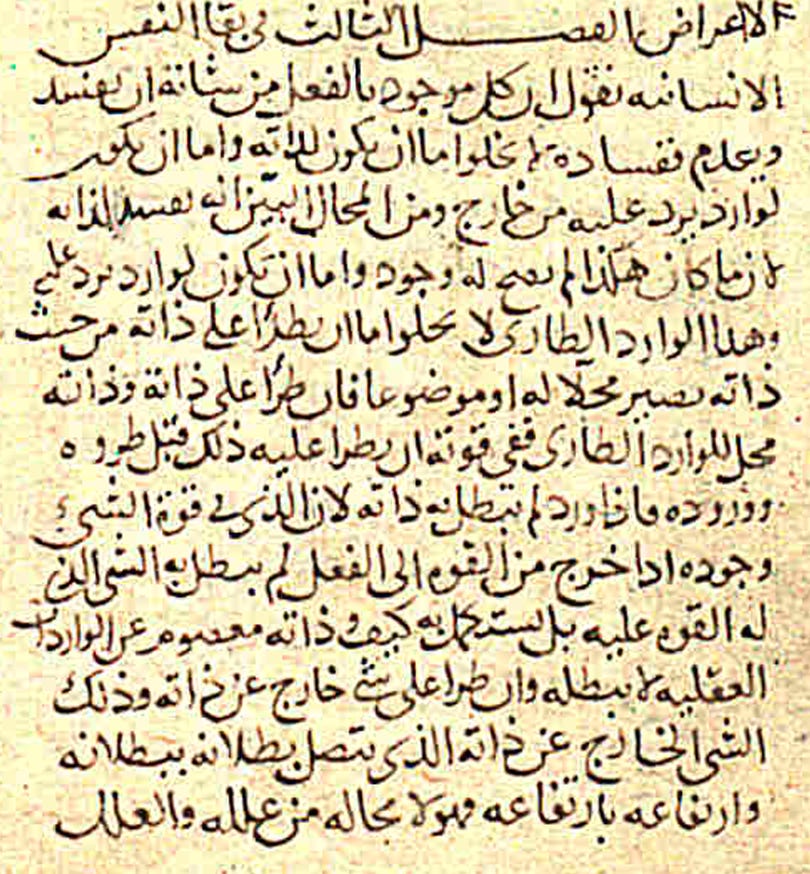 الاعراض الفصل الثالث فى بقا النفس
الانسانيه نقول ان كل موجود بالفعل من شانه ان يفسد
ويعدم ففساده لا يخلوا ما ان يكون لذاته واما ان يكون
لوارد يرد عليه من خارج ومن المحال البين انه يفسد لذاته
لان ما كان هكذا لم يصح له وجود واما ان يكون لوارد يرد عليه
وهذا الوارد الطارى لا يخلوا ما ان يطرا على ذاته من حيث
ذاته يصير محلا له او موضوعا فان طرا على ذاته وذاته
محل للوارد الطارى ففى قوته ان يطرا عليه ذلك قبل طروه
ووروده فاذا ورد لم تبطل به ذاته لان الذى فى قوة الشىء
وجوده اذا خرج من القوه الى الفعل لم يبطل به الشى الذى
له القوه عليه بل يستكمل به كيف وذاته معصوم عن الواردات
العقليه لا تبطله وان طرا على شى خارج عن ذاته وذلك
الشى الخارج عن ذاته الذى يتصل بطلانه ببطلانه
وارتفاعه بارتفاعه فهو لا محاله من علله والعلل